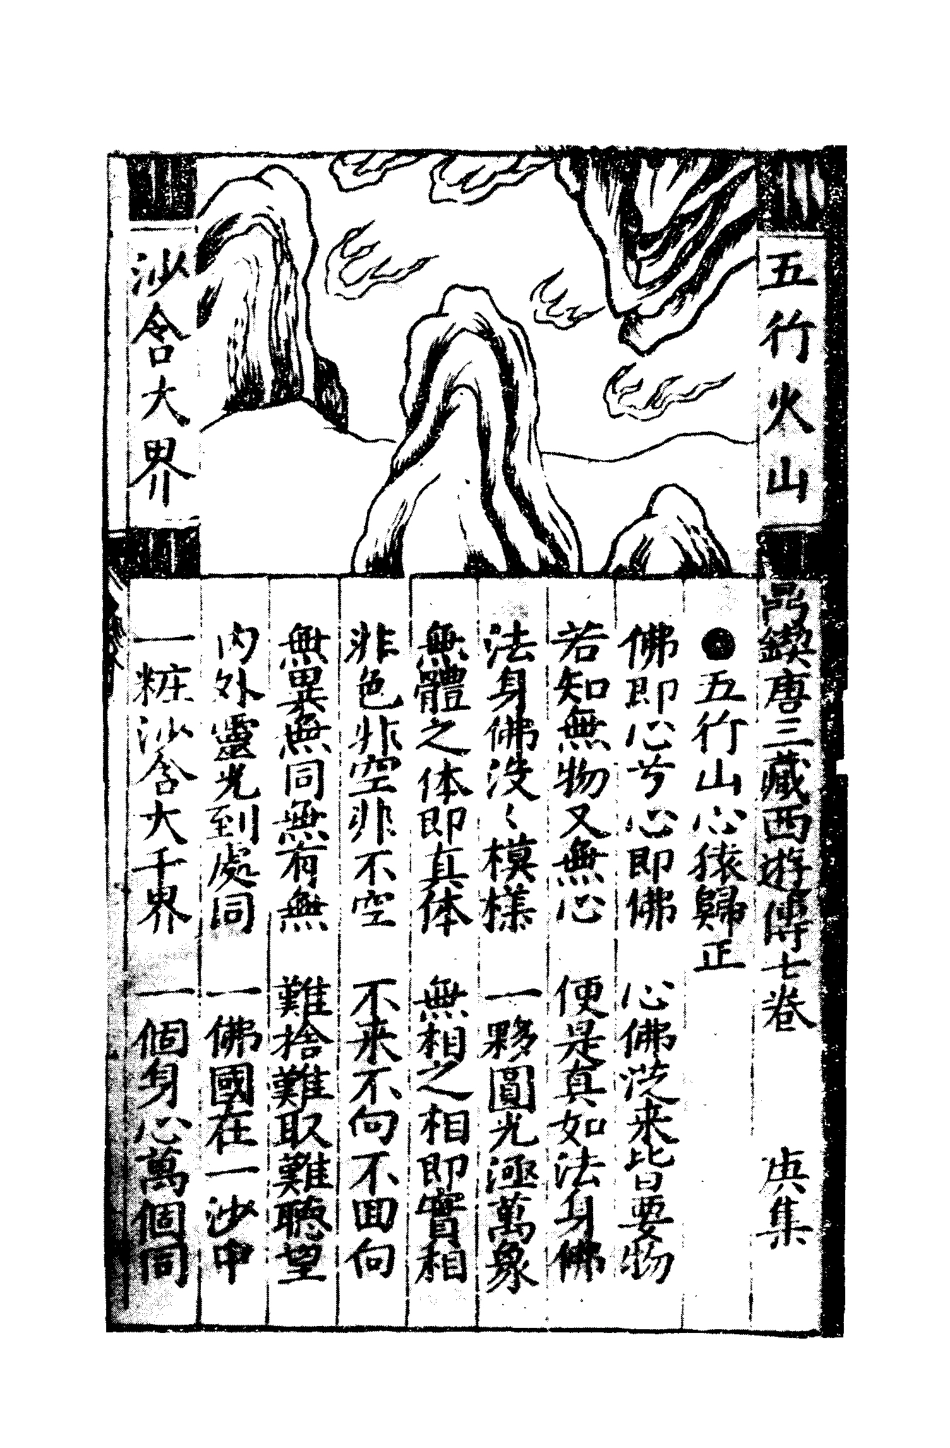 五行火山
沙含大界
品鍥唐三藏西遊傳七卷 庚集
五行山心猿歸正
佛即心兮心即佛 心佛從来皆要物
若知無物又無心 便是真如法身佛
法身佛没〻模樣 一夥圓光極萬象
無體之体即真体 無相之相即實相
非色非空非不空 不来不向不回向
無異無同無有無 難捨難取難聽望
内外靈光到處同 一佛國在一沙中
一粧沙含大千界 一個身心萬個同